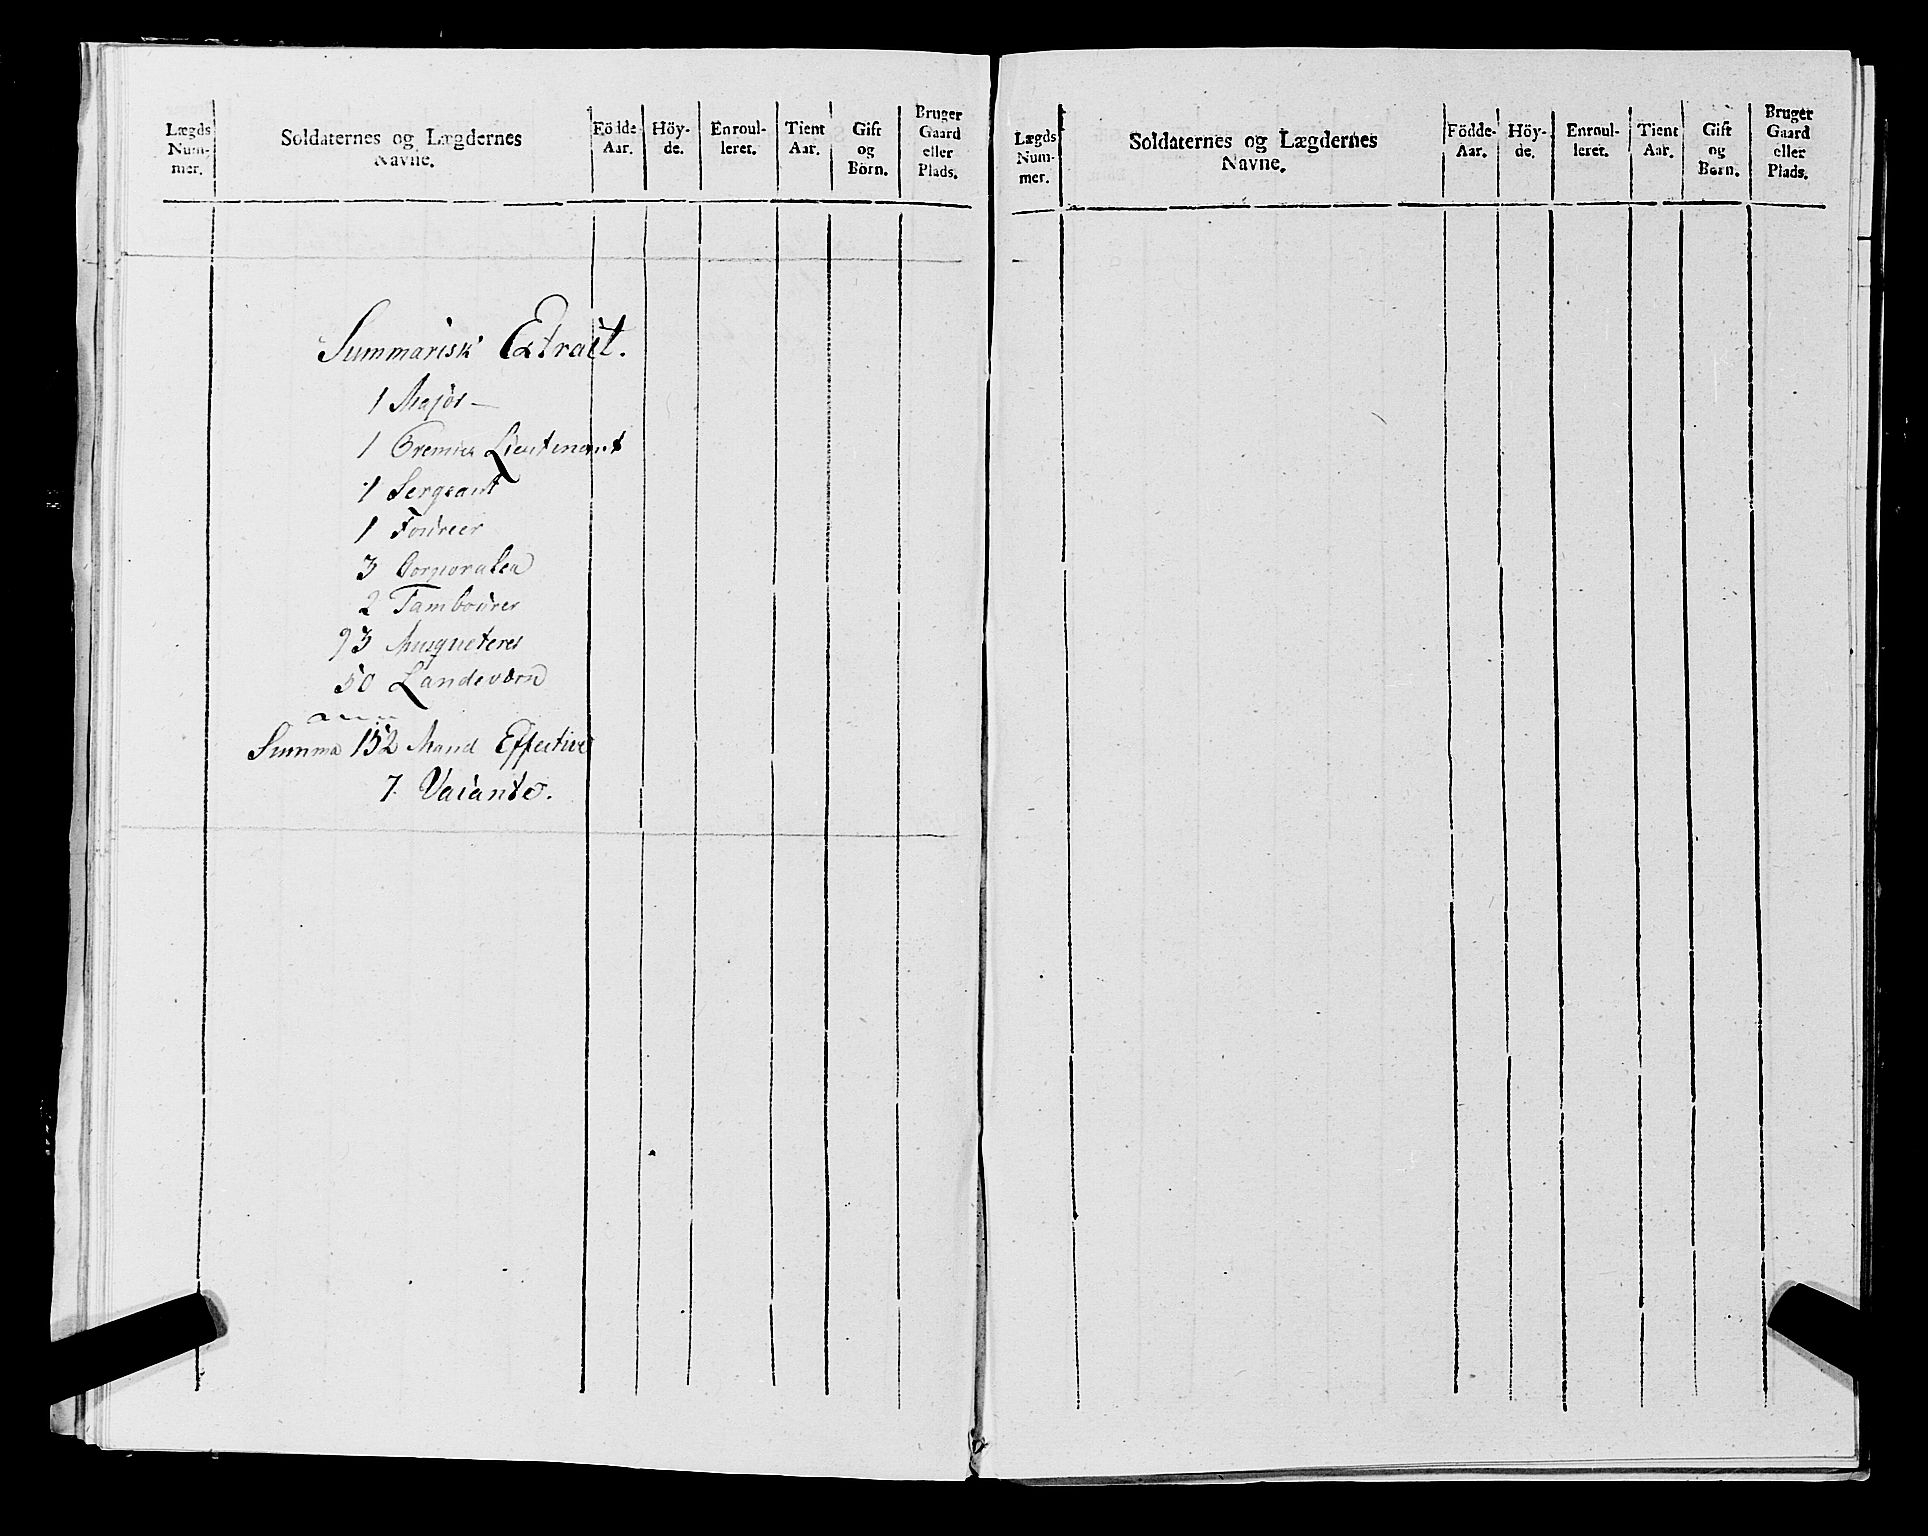 Lægds Num- mer.
Soldaternes og Lægdernes Navne.
Födde- Aar.
Höy- de.
Enroul- leret.
Tient Aar.
Gift og Börn.
Bruger Gaard eller Plads.
Summarisk Extract.
1 Major
1 Premier Lieutenant
1 Sergeant
1 Foureer
3 Corporaler
2 Tambourer
93 Musqueterer
50 Landeværn
Summa 152 Mand Effective
7 Vacante.
Lægds Num- mer.
Soldaternes og Lægdernes Navne.
Födde- Aar.
Höy- de.
Enroul- leret.
Tient Aar.
Gift og Børn.
Bruger Gaard eller Plads.